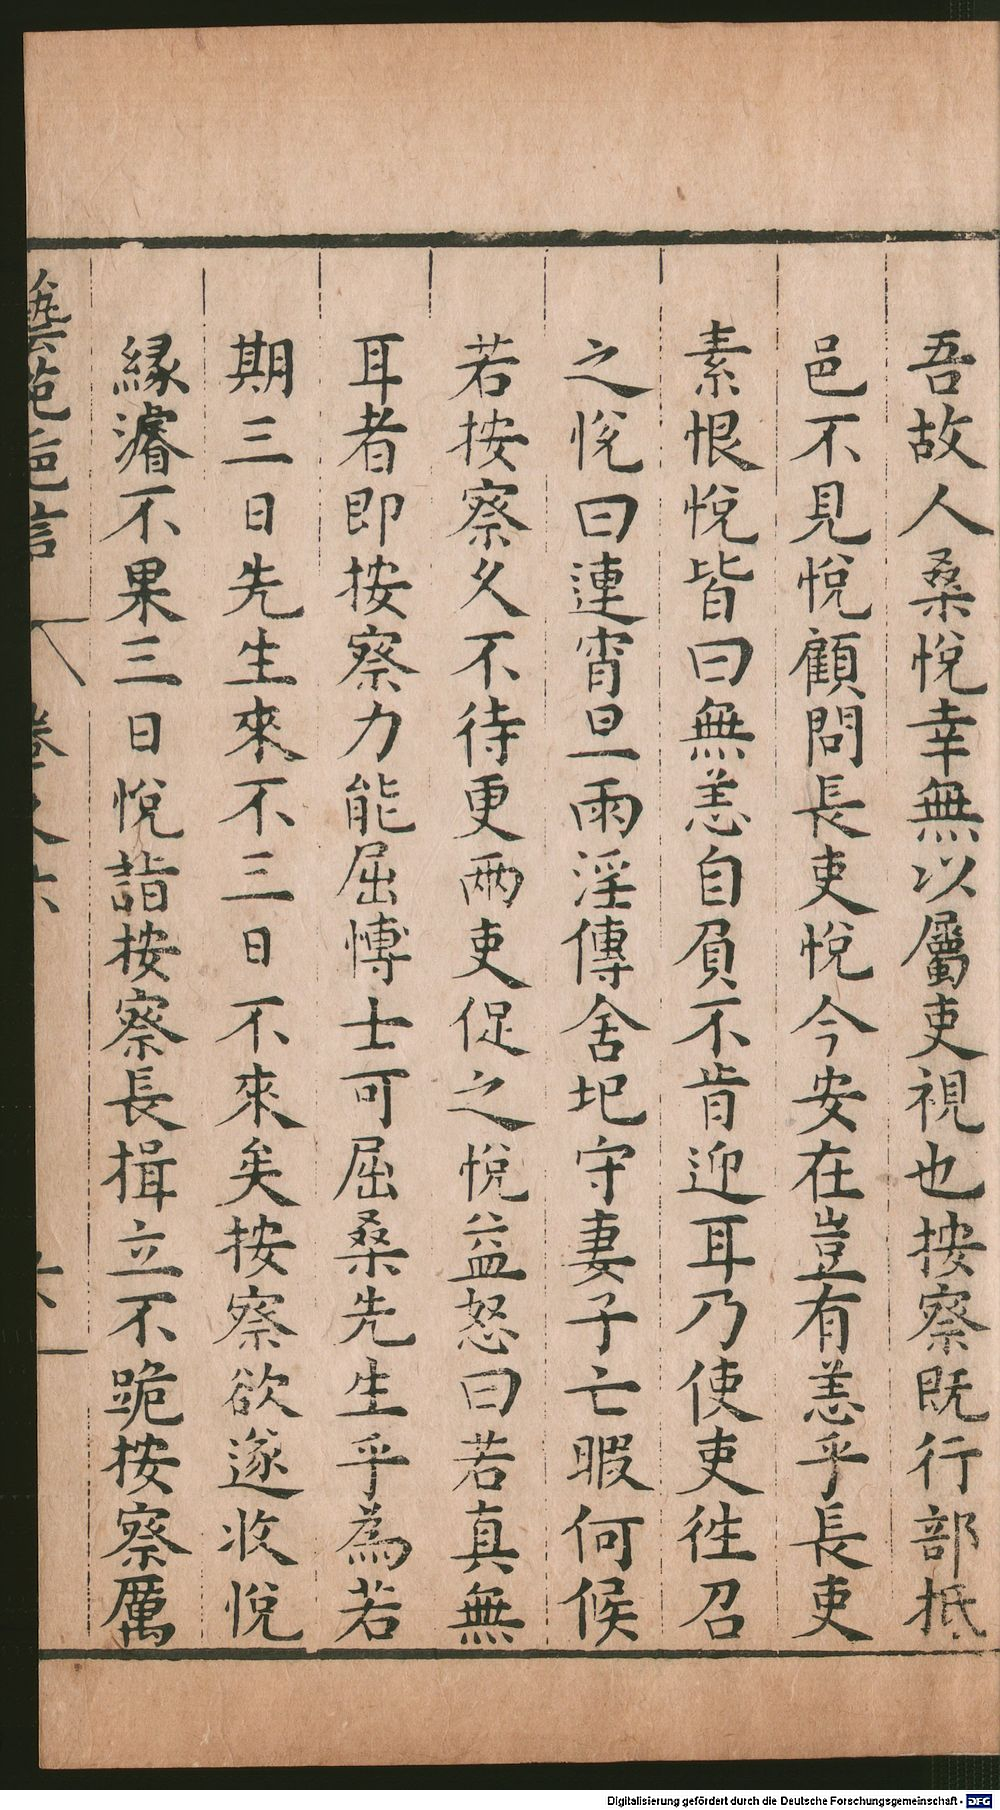 吾故人桑悅幸無以屬吏視也按察既行部抵
邑不見悅顧問長吏悅今安在豈有恙乎長吏
素恨悅皆曰無恙自負不肯迎耳乃使吏徃召
之悅曰連宵旦雨淫傳舍圯守妻子亡暇何候
若按察久不待更兩吏促之悅益怒曰若真無
耳者即按察力能屈愽士可屈桑先生乎為若
期三日先生來不三日不來矣按察欲遂收悅
緣濬不果三日悅詣按察長揖立不跪按察厲
藝苑巵言 卷之六 六
Digitalisierung gefördert durch die Deutsche Forschungsgemeinschaft - DFG